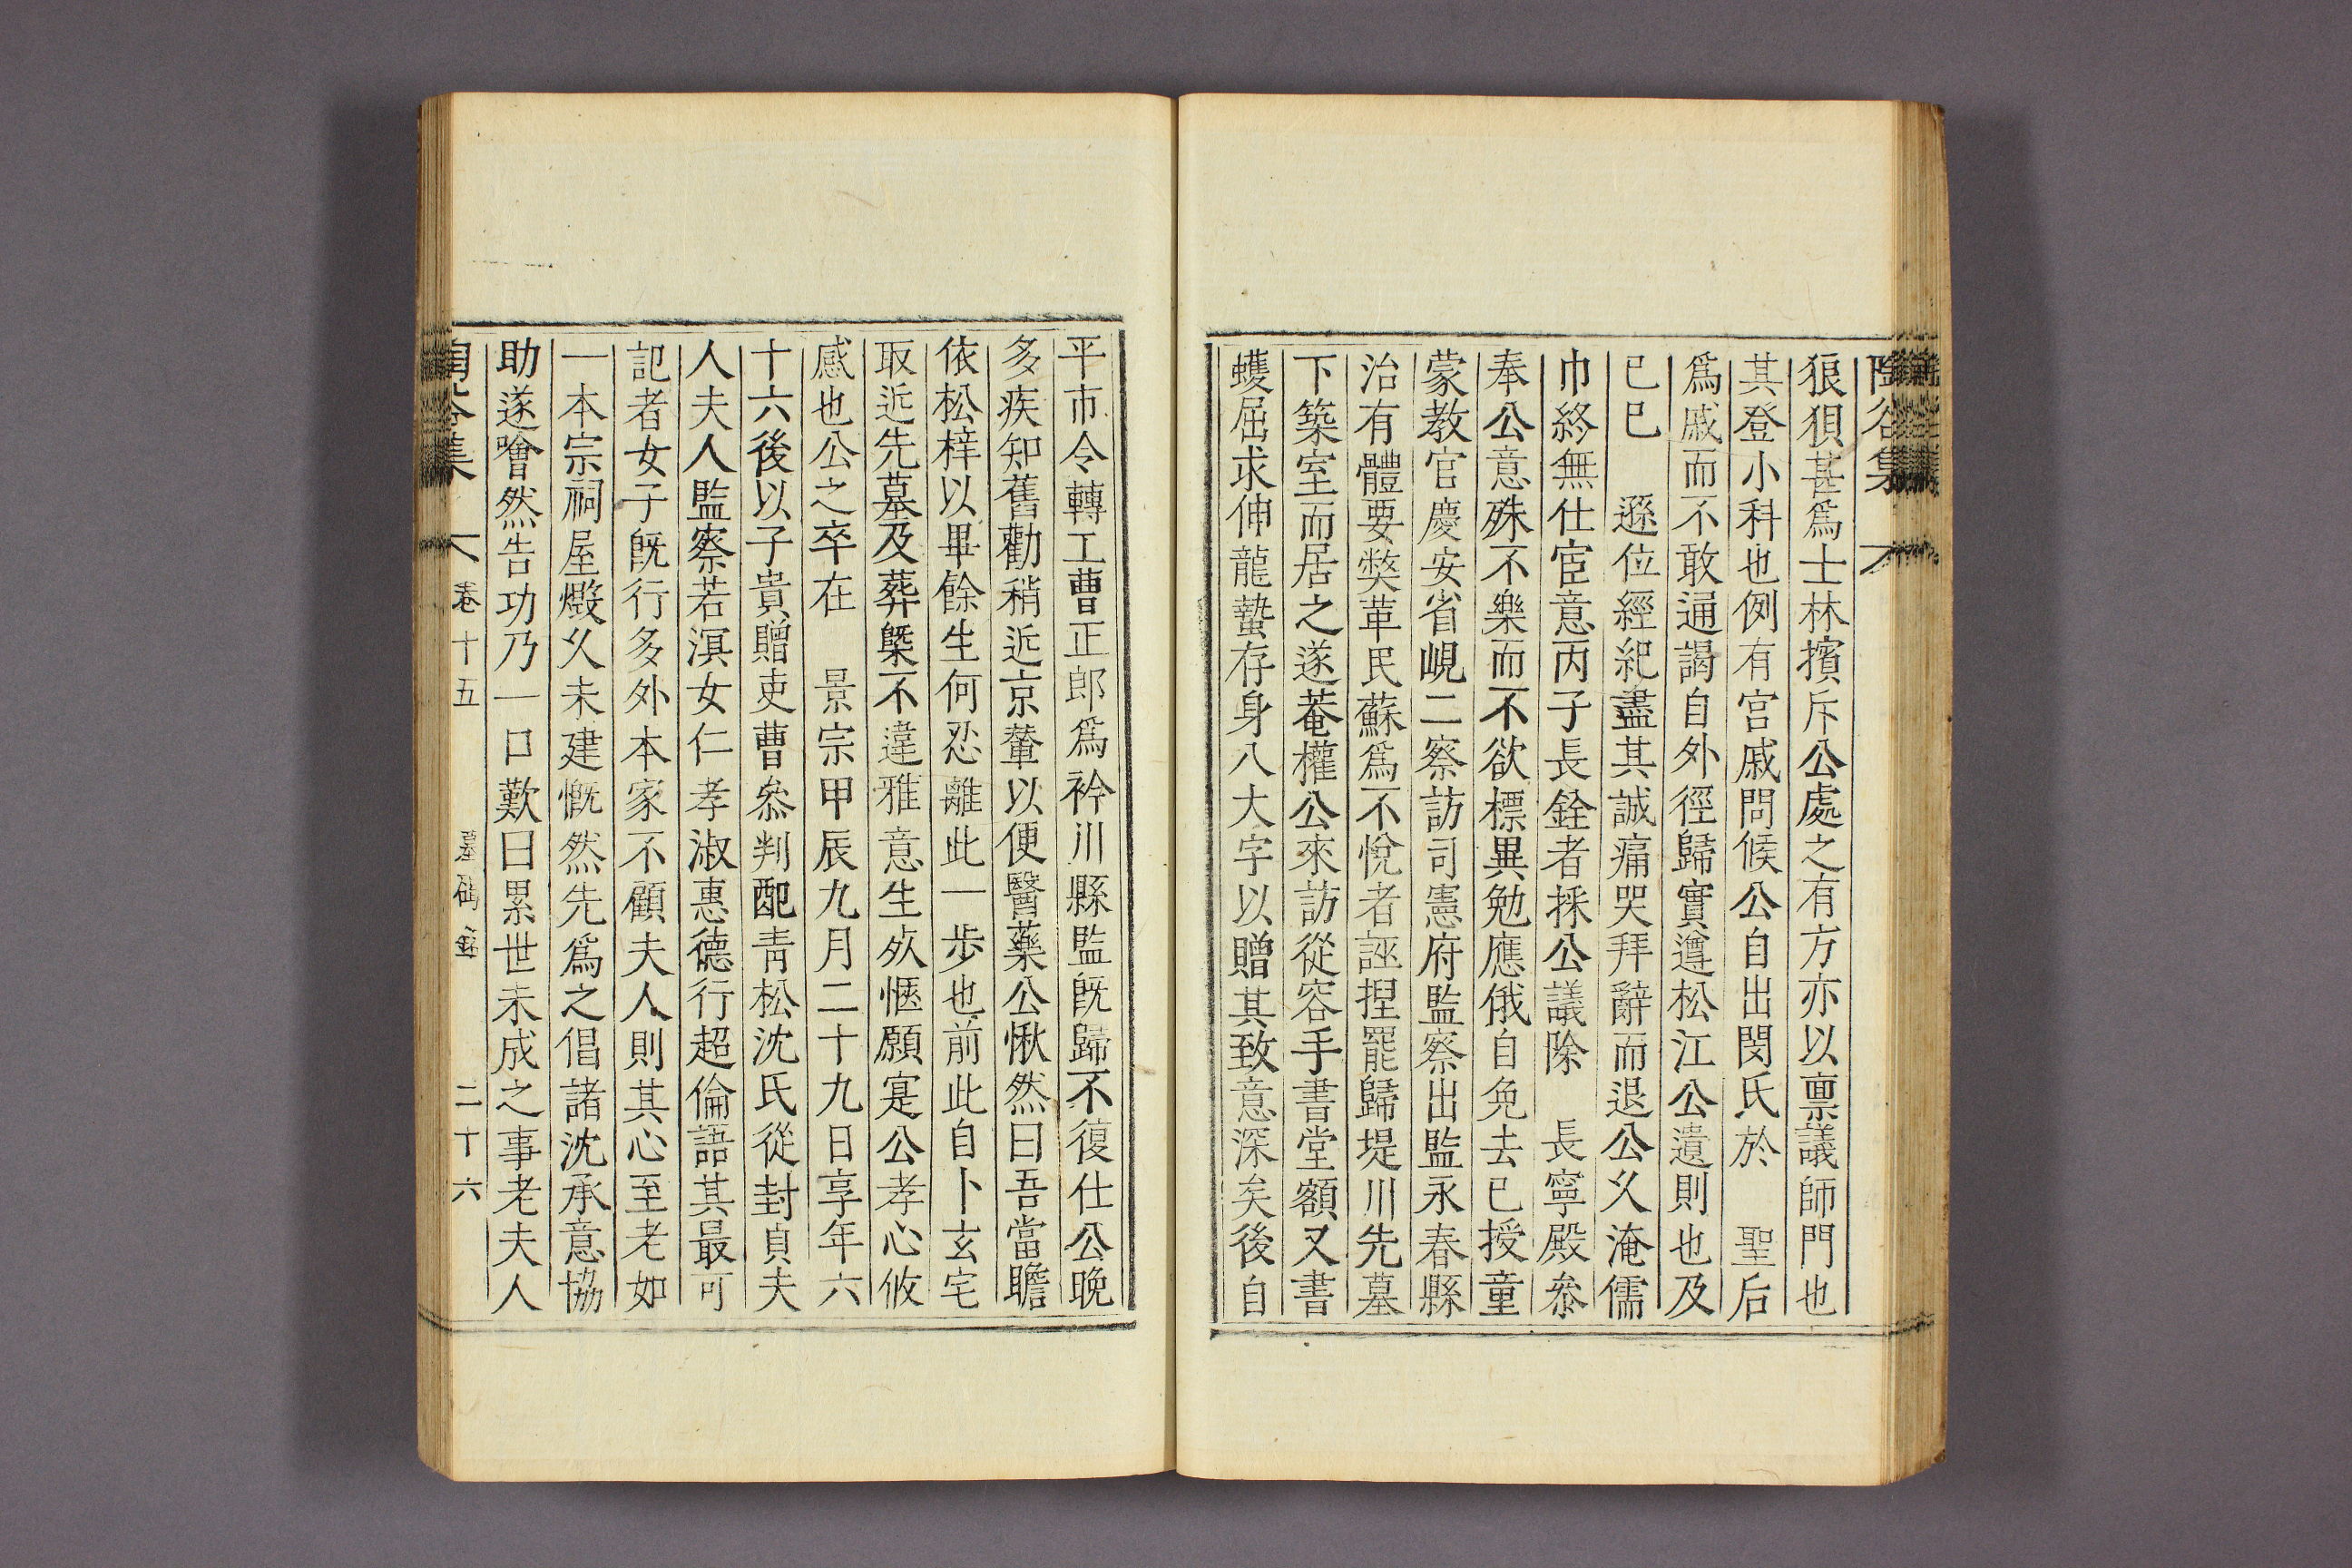 陶谷集
狼狽甚爲士林擯斥公處之有方亦以禀議師門也
其登小科也例有宮戚問候公自出閔氏於　聖后
爲戚而不敢通謁自外徑歸實遵松江公遺則也及
己巳　遜位經紀盡其誠痛哭拜辭而退公久淹儒
巾終無仕宦意丙子長銓者採公議除　長寧殿叅
奉公意殊不樂而不欲標異勉應俄自免去已授童
蒙教官慶安省峴二察訪司憲府監察出監永春縣
治有體要獘革民蘇爲不悅者誣捏罷歸堤川先墓
下築室而居之遂菴權公來訪從容手書堂額又書
蠖屈求伸龍蟄存身八大字以贈其致意深矣後自
平市令轉工曹正郎爲衿川縣監旣歸不復仕公晚
多疾知舊勸稍近京輦以便醫藥公愀然曰吾當瞻
依松梓以畢餘生何忍離此一步也前此自卜玄宅
取近先墓及葬槩不違雅意生死愜願寔公孝心攸
感也公之卒在　景宗甲辰九月二十九日享年六
十六後以子貴贈吏曹叅判配靑松沈氏從封貞夫
人夫人監察若溟女仁孝淑惠德行超倫語其最可
記者女子旣行多外本家不顧夫人則其心至老如
一本宗祠屋燬久未建慨然先爲之倡諸沈承意協
助遂噲然告功乃一口歎曰累世未成之事老夫人
陶谷集　卷十五　墓碣銘　二十六